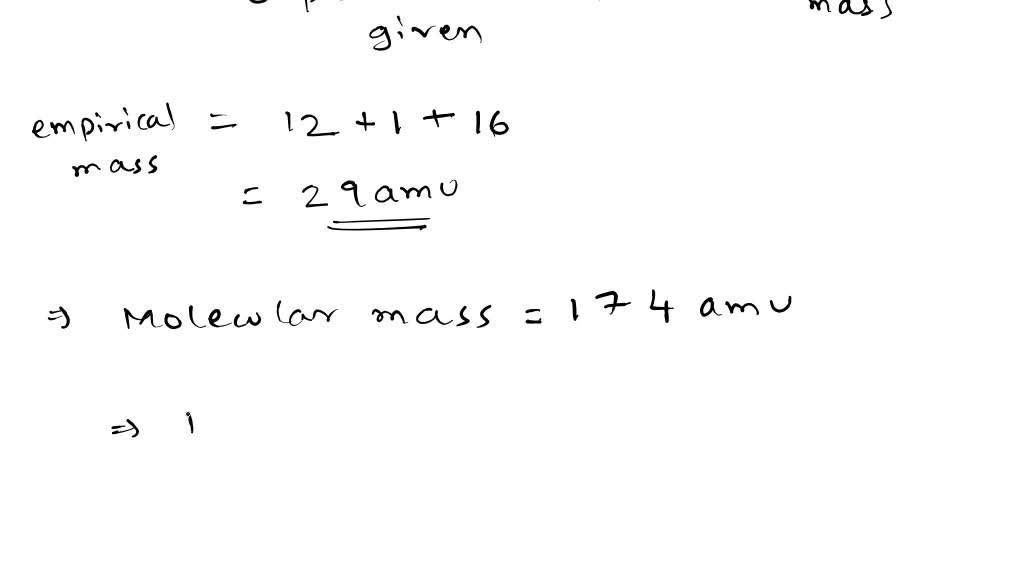 mass
given
empirical = 12 + 1 + 16
mass
= 29 amu
⇒ Molecular mass = 174 amu
⇒ 1